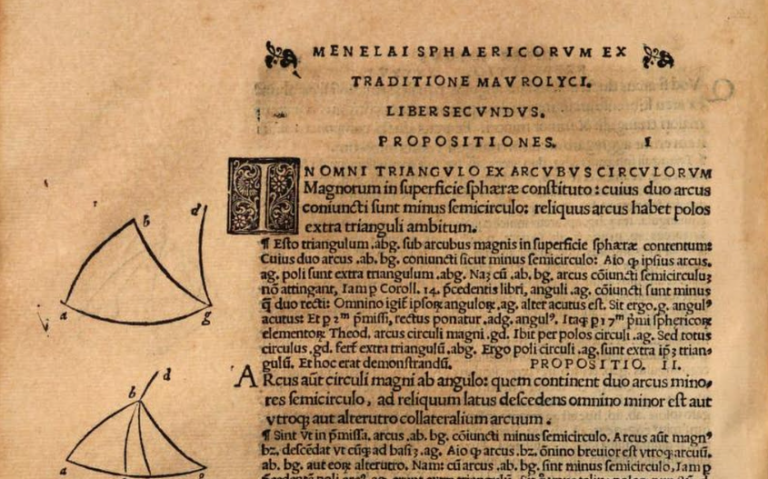 MENELAI SPHAERICORVM EX
TRADITIONE MAVROLYCI.
LIBER SECVNDVS.
PROPOSITIONES. I
IN OMNI TRIANGVLO EX ARCVBVS CIRCVLORVM
Magnorum in superficie sphæræ constituto: cuius duo arcus
coniuncti sunt minus semicirculo: reliquus arcus habet polos
extra trianguli ambitum.
¶ Esto triangulum .abg. sub arcubus magnis in superficie sphæræ contentum:
Cuius duo arcus .ab. bg. coniuncti sicut minus semicirculo: Aio ꝙ ipsius arcus.
ag. poli sunt extra triangulum .abg. Naʒ cū .ab. bg. arcus cōiuncti semicirculuʒ
nō attingant, Iam p Coroll. 14. p̄cedentis libri, anguli .ag. cōiuncti sunt minus
q̄ duo recti: Omnino igit ipsoꝝ anguloꝝ, ag. alter acutus est. Sit ergo.g. angulꝰ
acutus: Et p 2ᵐ p̄missi, rectus ponatur .adg. angulꝰ. Itaqꝫ p 17ᵐ p̄mi sphericoꝝ
elementoꝝ Theod. arcus circuli magni .gd. Ibit per polos circuli .ag. Sed totus
circulus .gd. fert extra triangulū .abg. Ergo poli circuli .ag. sunt extra ip̄ʒ trian-
gulū. Et hoc erat demonstrandū. PROPOSITIO. II.
ARcus aūt circuli magni ab angulo: quem continent duo arcus mino-
res semicirculo, ad reliquum latus descēdens omnino minor est aut
vtroqꝫ aut alterutro collateralium arcuum.
¶ Sint vt in p̄missa, arcus .ab. bg. cōiuncti minus semicirculo. Arcus aūt magnꝰ
bz. descēdat vt cūqꝫ ad basiʒ .ag. Aio ꝙ arcus .bz. ōnino breuior est vtroqꝫ arcuū.
ab. bg. aut eoꝝ alterutro. Nam: cū arcus .ab. bg. sint minus semicirculo, Iam p
b
d
a
g
d
b
a
g